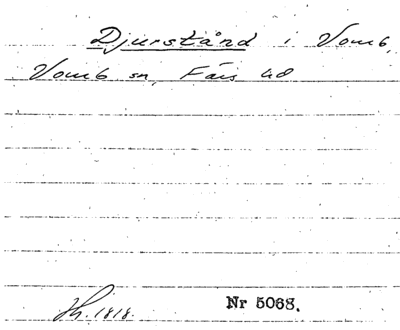 Djurstånd i Vomb,
Vomb sn, Färs hd
Jh. 1818.
Nr 5068.